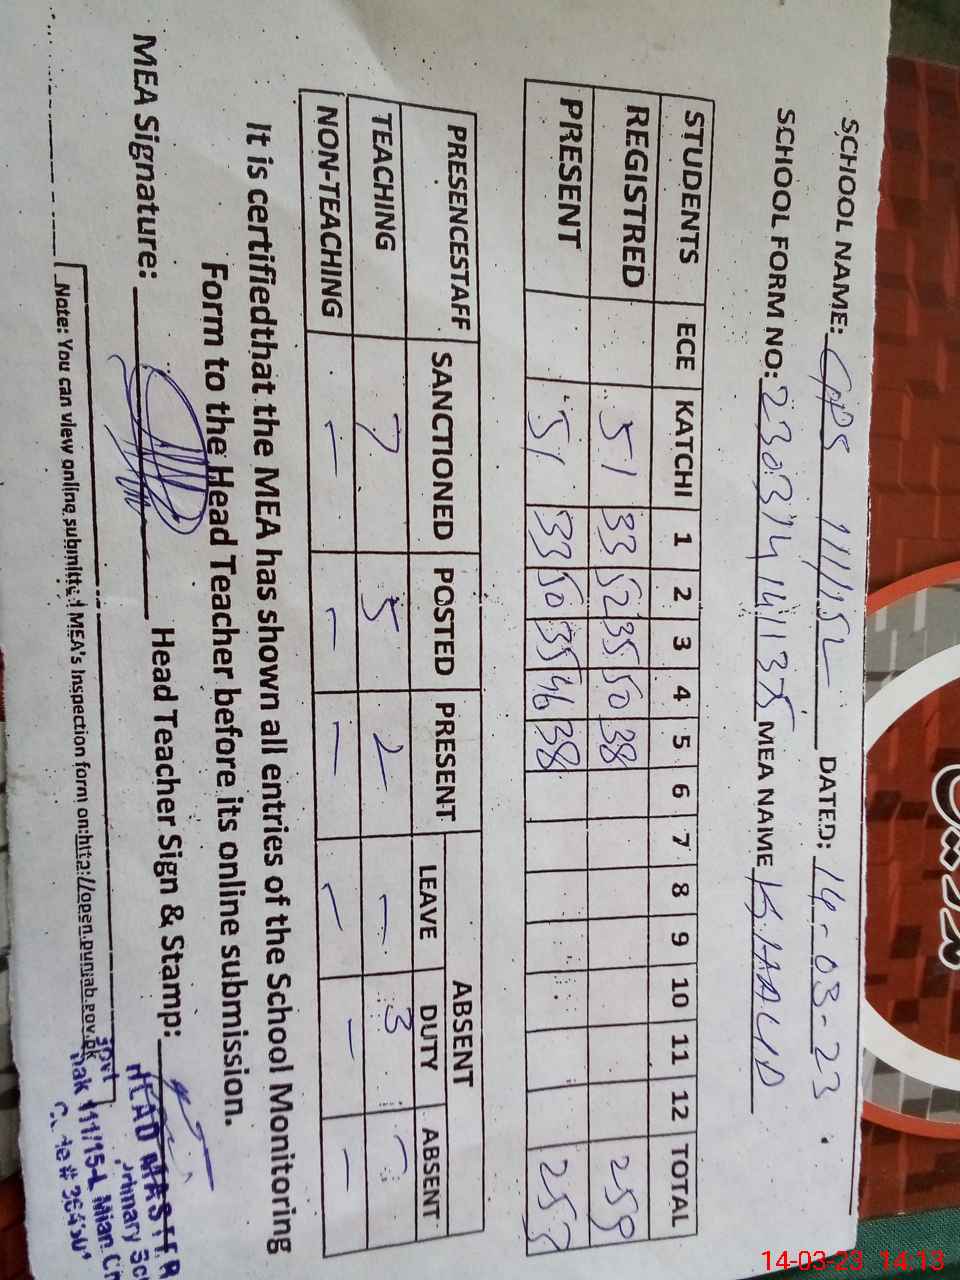 SCHOOL NAME: GPS 111/15L DATED: 14-03-23
SCHOOL FORM NO: MEA NAME KHALID
STUDENTS ECE KATCHI 1 2 3 4 5 6 7 8 9 10 11 12 TOTAL
REGISTRED 51 33 52 35 50 38 259
PRESENT 51 33 50 35 46 38 253
PRESENCESTAFF SANCTIONED POSTED PRESENT ABSENT
LEAVE DUTY ABSENT
TEACHING 7 5 2 — 3 —
NON-TEACHING — — — — — —
It is certifiedthat the MEA has shown all entries of the School Monitoring
Form to the Head Teacher before its online submission.
MEA Signature: Head Teacher Sign & Stamp:
HEAD MASTER
Govt Primary
111/15-L Mian
Note: You can view online submitted MEA's Inspection form on:http://open.punjab.gov.pk
14-03-23 14:13